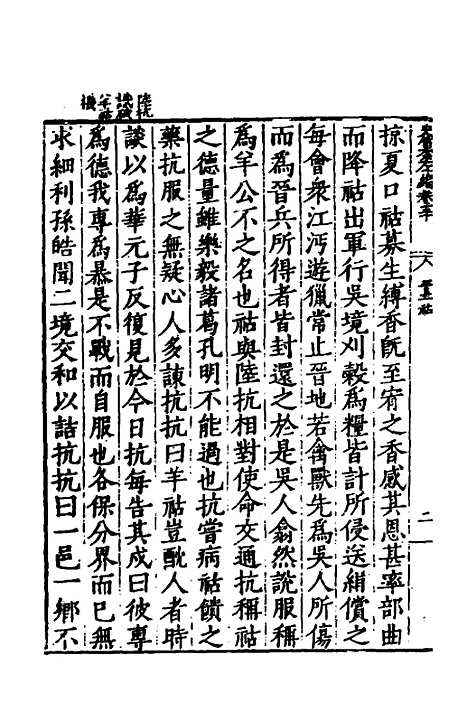 掠夏口祜募生縛香旣至宥之香感其恩甚率部曲
而降祜出軍行吳境刈穀爲糧皆計所侵送絹償之
每會衆江沔遊獵常止晉地若禽獸先爲吳人所傷
而爲晉兵所得者皆封還之於是吳人翕然說服稱
爲羊公不之名也祜與陸抗相對使命交通抗稱祜
之德量雖樂毅諸葛孔明不能過也抗嘗病祜饋之
藥抗服之無疑心人多諫抗抗曰羊祜豈酖人者時
談以爲華元子反復見於今日抗每告其戍曰彼專
爲德我專爲暴是不戰而自服也各保分界而已無
求細利孫皓聞二境交和以詰抗抗曰一邑一鄉不
陸抗